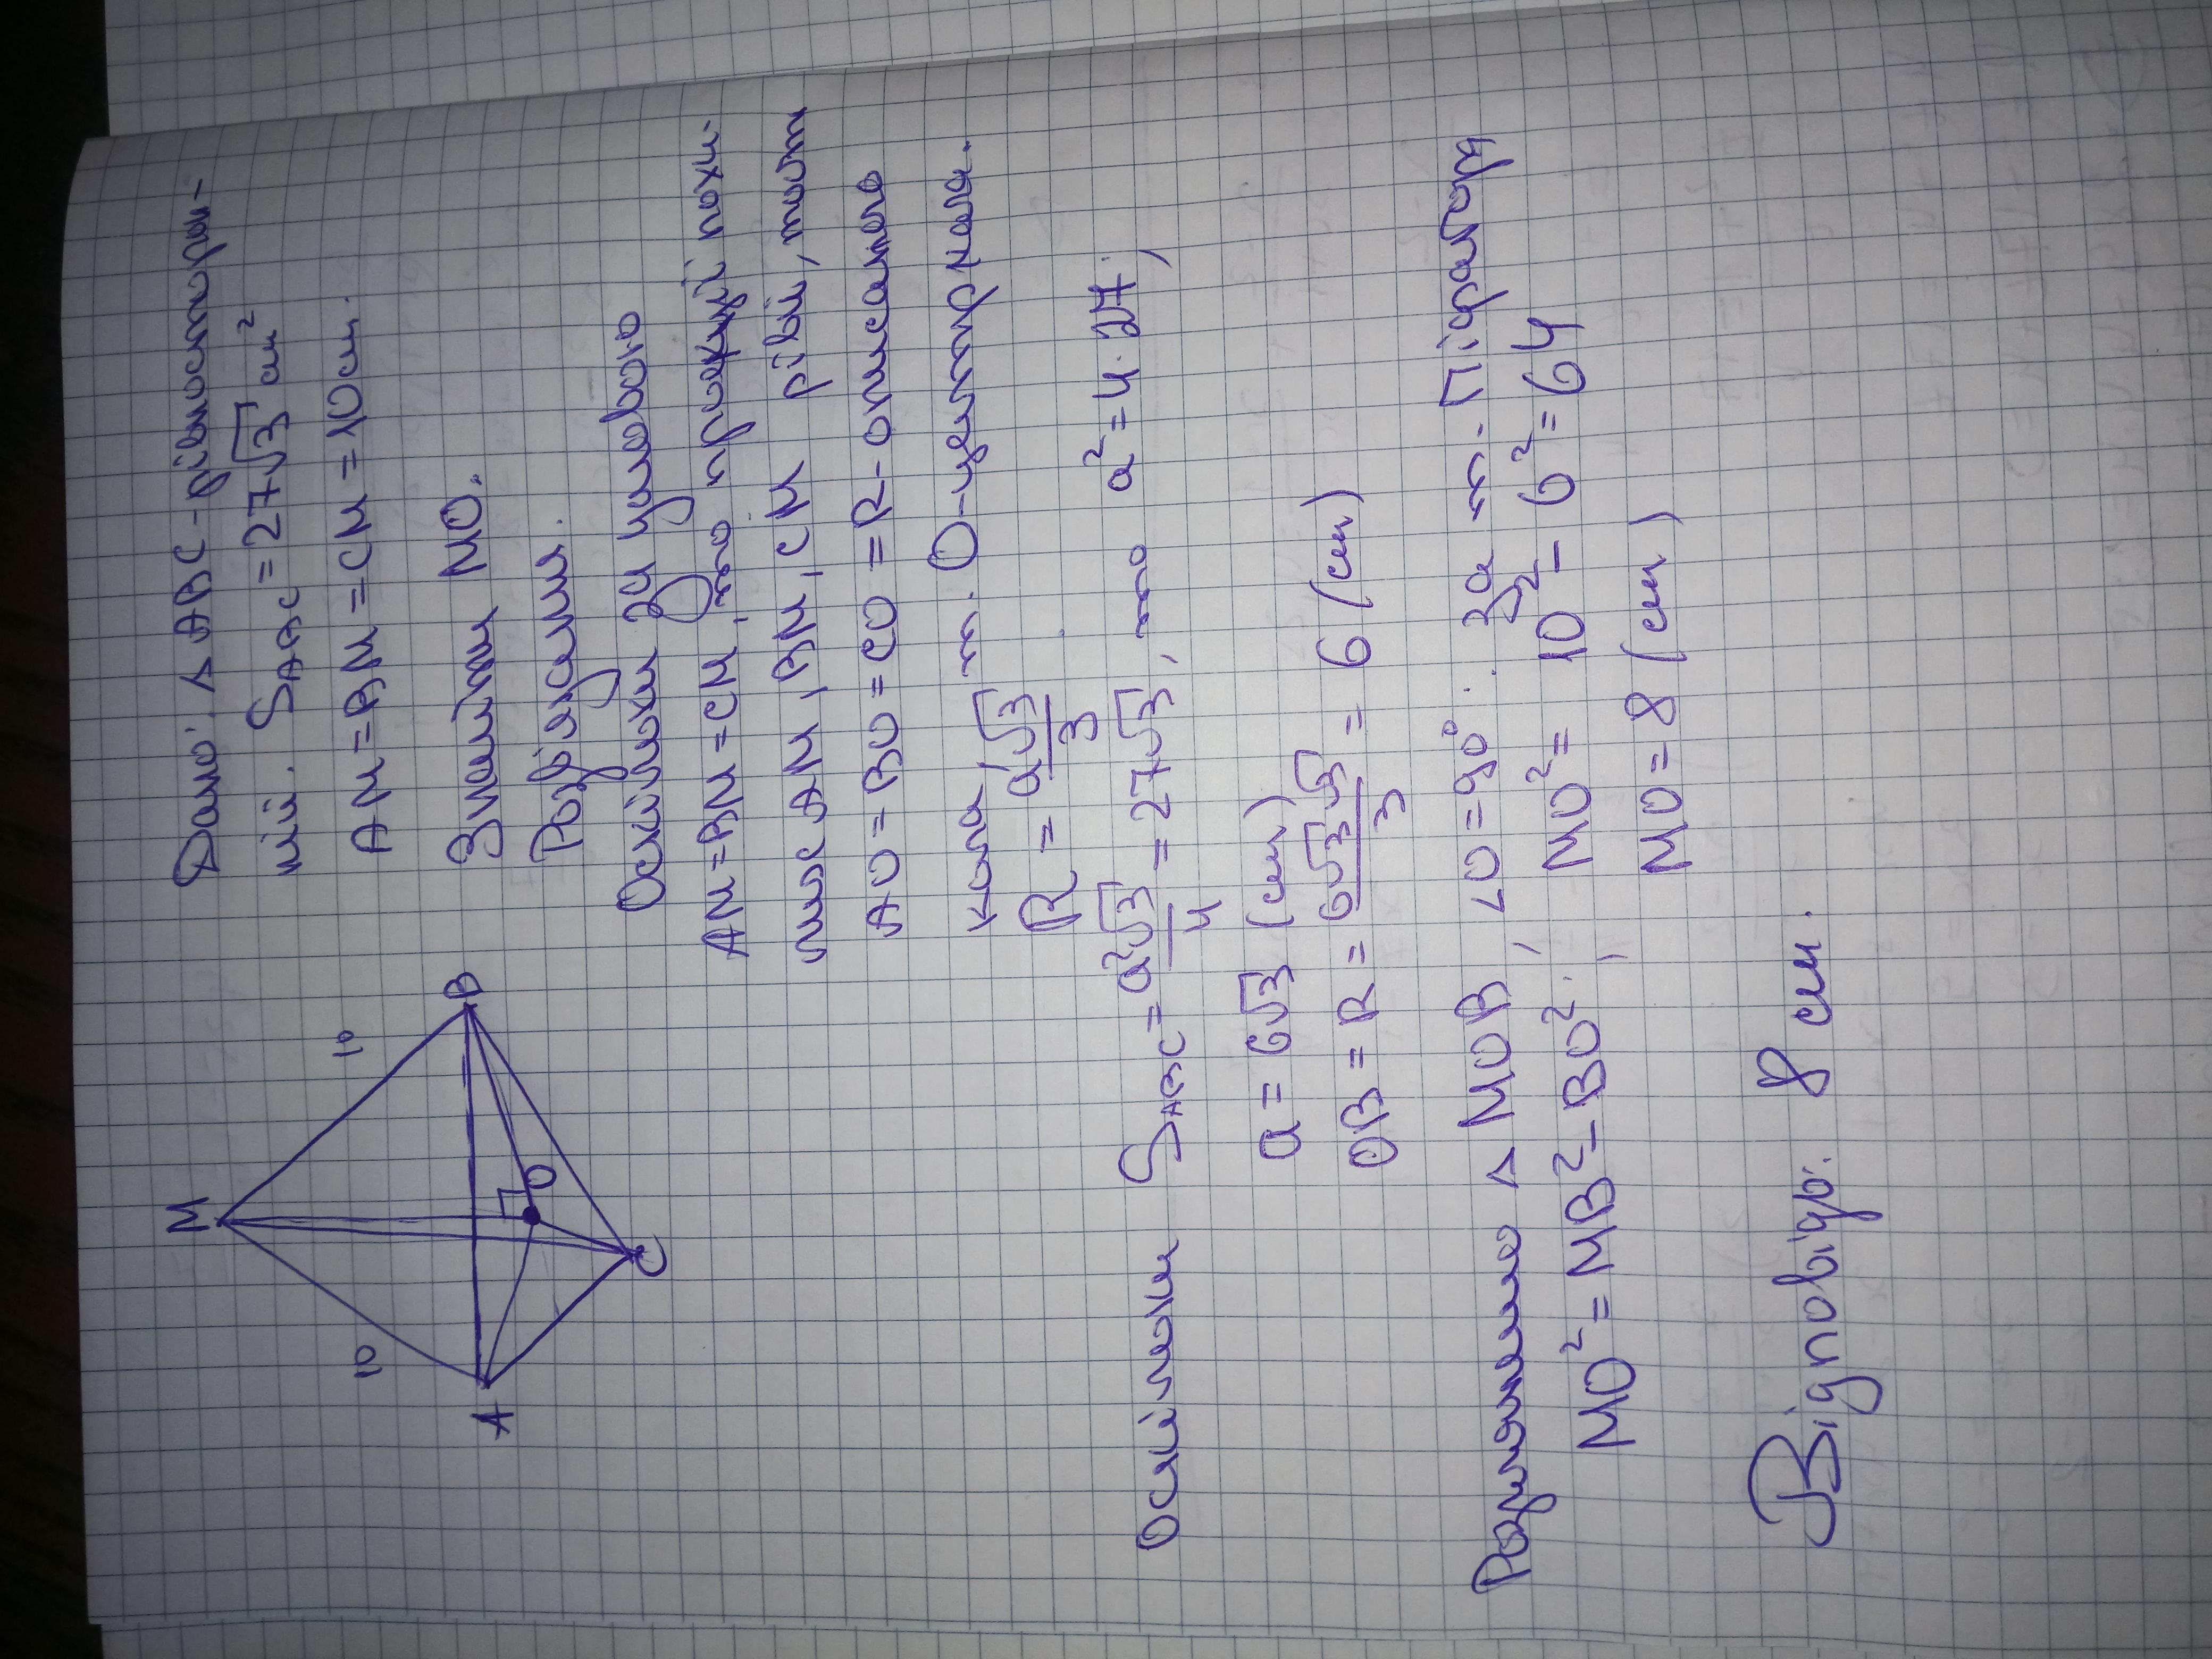 M
10
10
A
B
O
C
Дано: △ ABC - рівносторон-
ній. SABC = 27√3 см²
AM = BM = CM = 10 см.
Знайти MO.
Розв'язання.
Оскільки за умовою
AM = BM = CM, то проекції похи-
лих AM, BM, CM рівні, тоді
AO = BO = CO = R - описаного
кола, т. O - центр кола.
R = a√3/3
Оскільки SABC = a²√3/4 = 27√3, то a² = 4·27;
a = 6√3 (см)
OB = R = 6√3·√3/3 = 6 (см)
Розглянемо △ MOB, ∠O = 90°. За т. Піфагора
MO² = MB² - BO²; MO² = 10² - 6² = 64
MO = 8 (см)
Відповідь: 8 см.